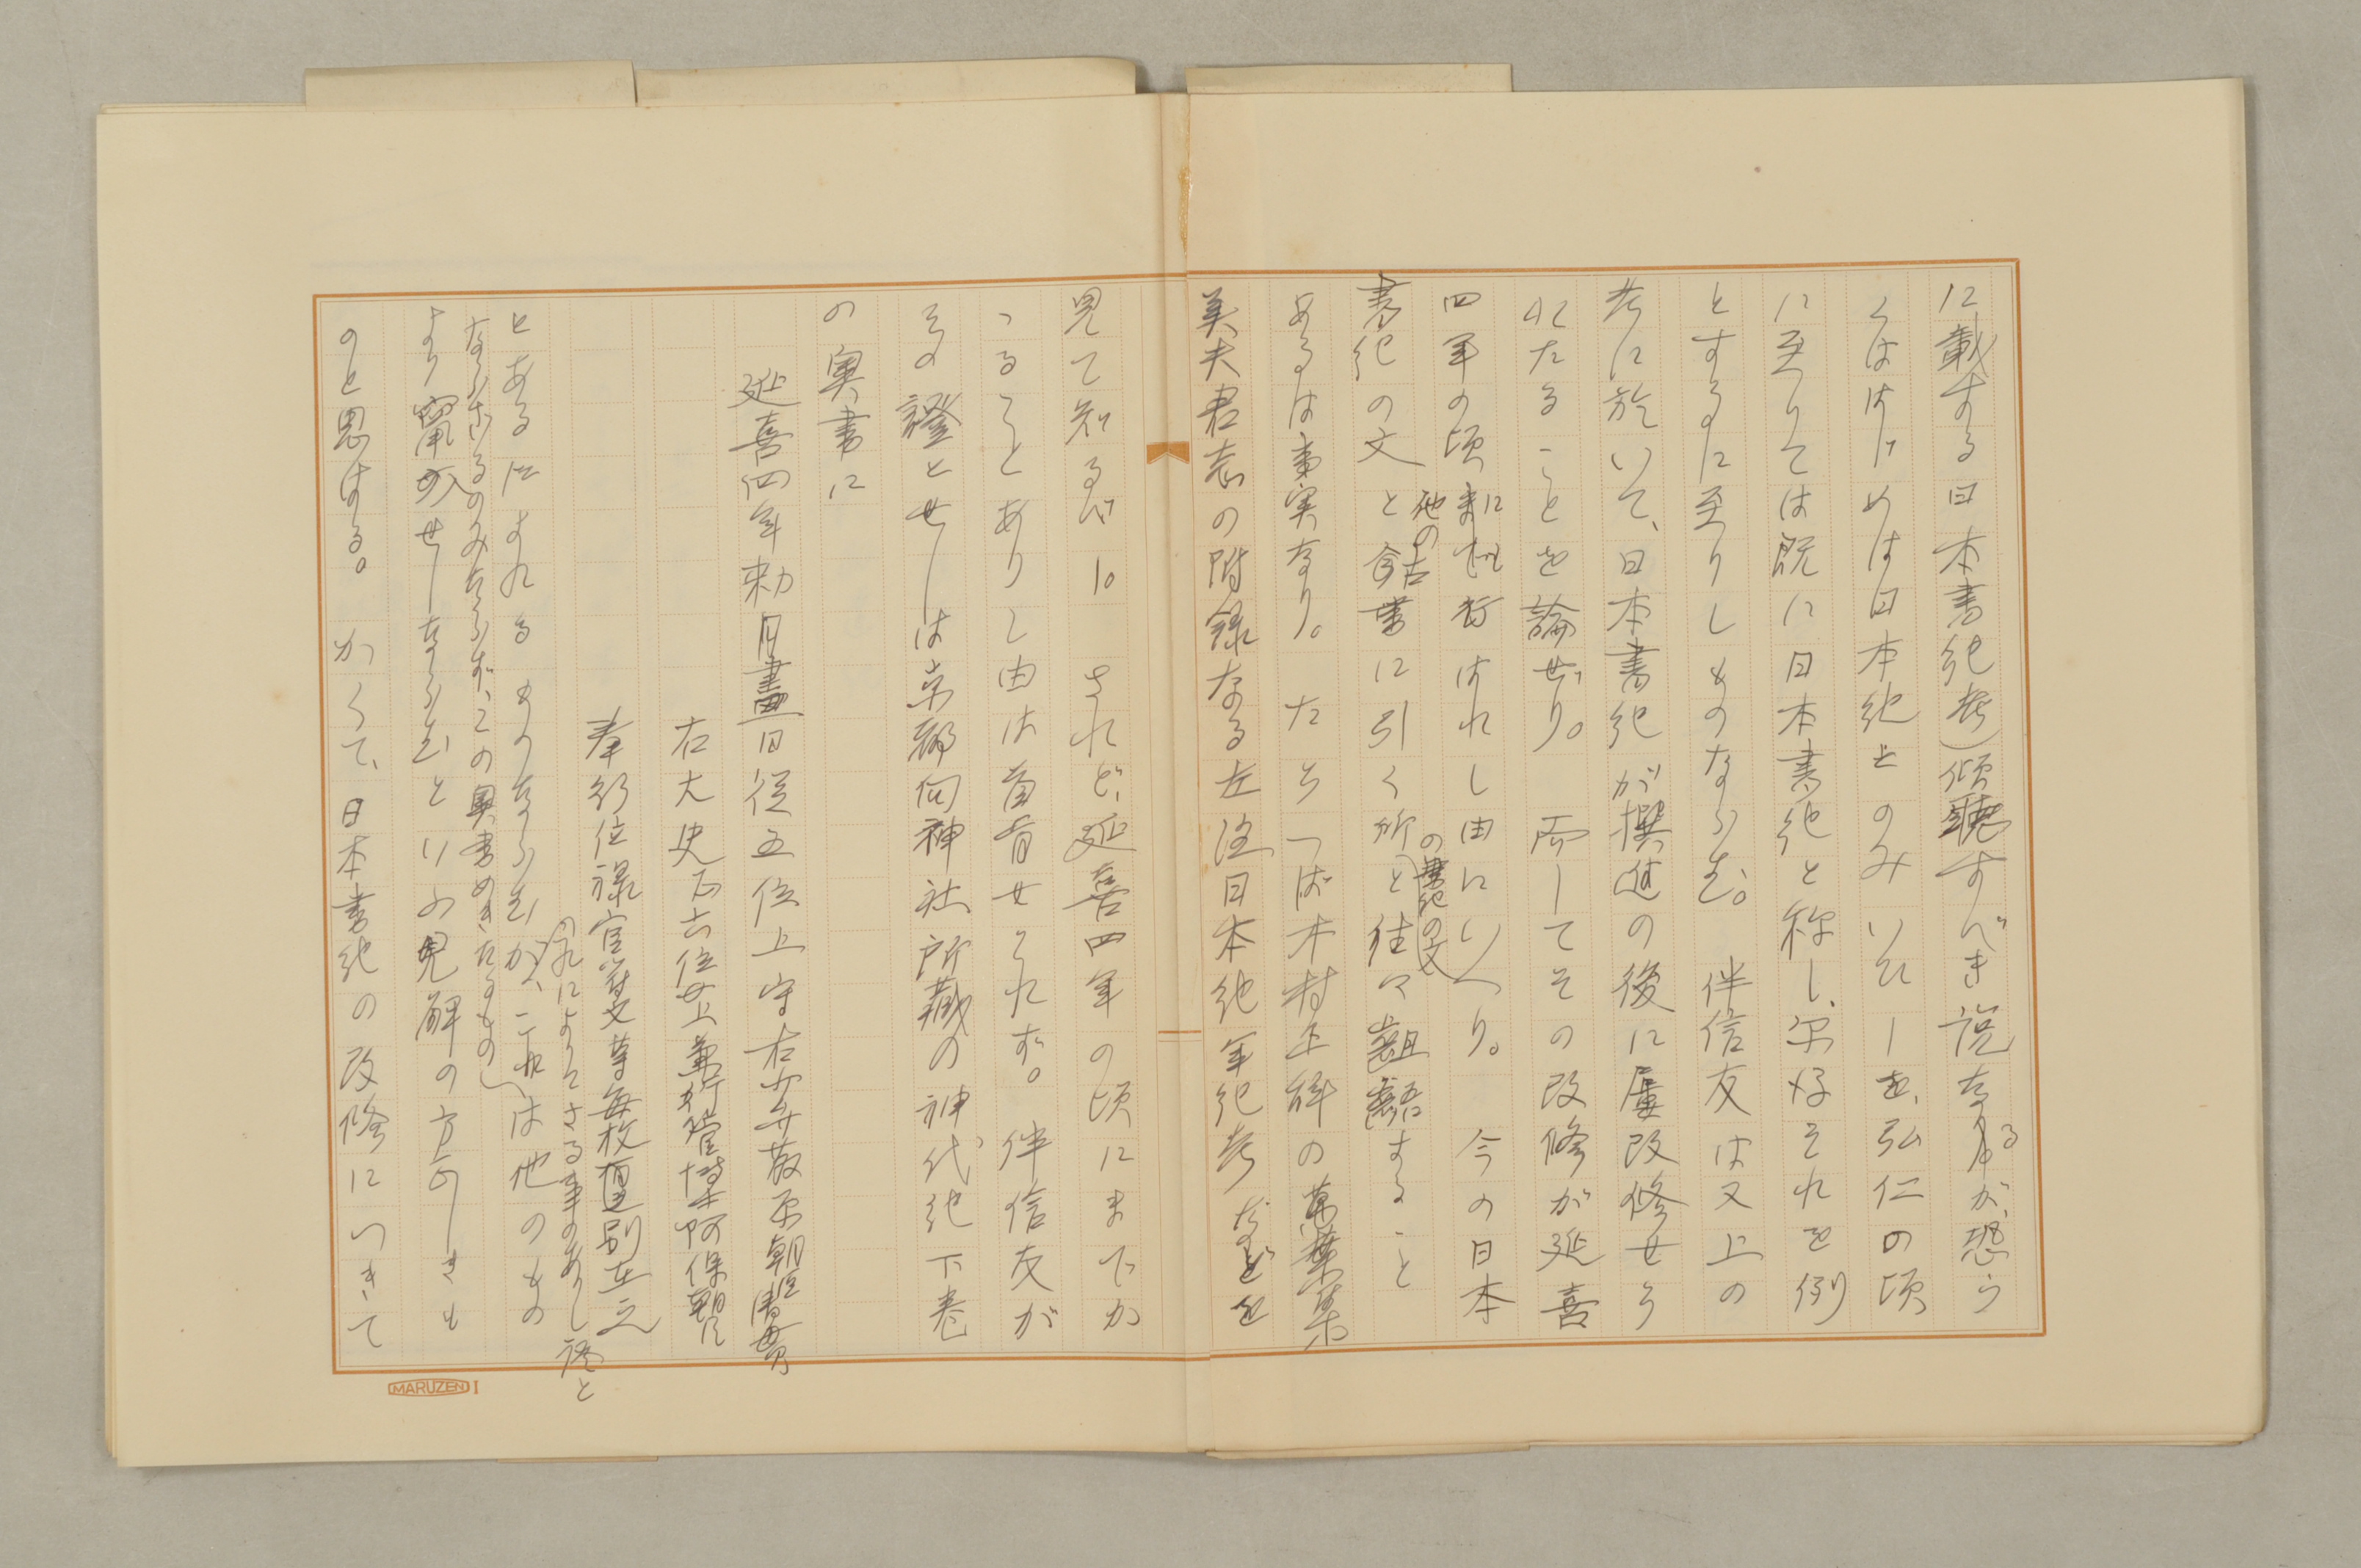 に載する日本書紀考)傾聴すべき説なるが、恐ら
くははじめは日本紀とのみいひしを、弘仁の頃
に至りては既に日本書紀と称し、
とするに至りしものならむ。 伴信友は又上の
考に於いて、日本書紀が撰進の後に屢改修せら
れたることを論ぜり。 而してその改修が延喜
四年の頃まに行はれし由にいへり。 今の日本
書紀の文と他の古書に引く所の書紀の文と往々齟齬すること
あるは事実なり。 たとへば木村正辞の萬葉集
美夫君志の附録なる左注日本紀年紀考などを
見て知るべし。 されど、延喜四年の頃にまでか
ゝることありし由は首肯せられず。 伴信友が
その證とせしは京都向神社所蔵の神代紀下巻
の奥書に
延喜四年
右大史正六位上
奉行位禄官
とあるによれるものならむが、これは他のもの
のれによりてさる事のありし證と
ならざるのみならず、この奥書めきたるもの
より竄入せしならむといふ見解の方正しきも
のと思はる。 かくて、日本書紀の改修につきて
MARUZEN I